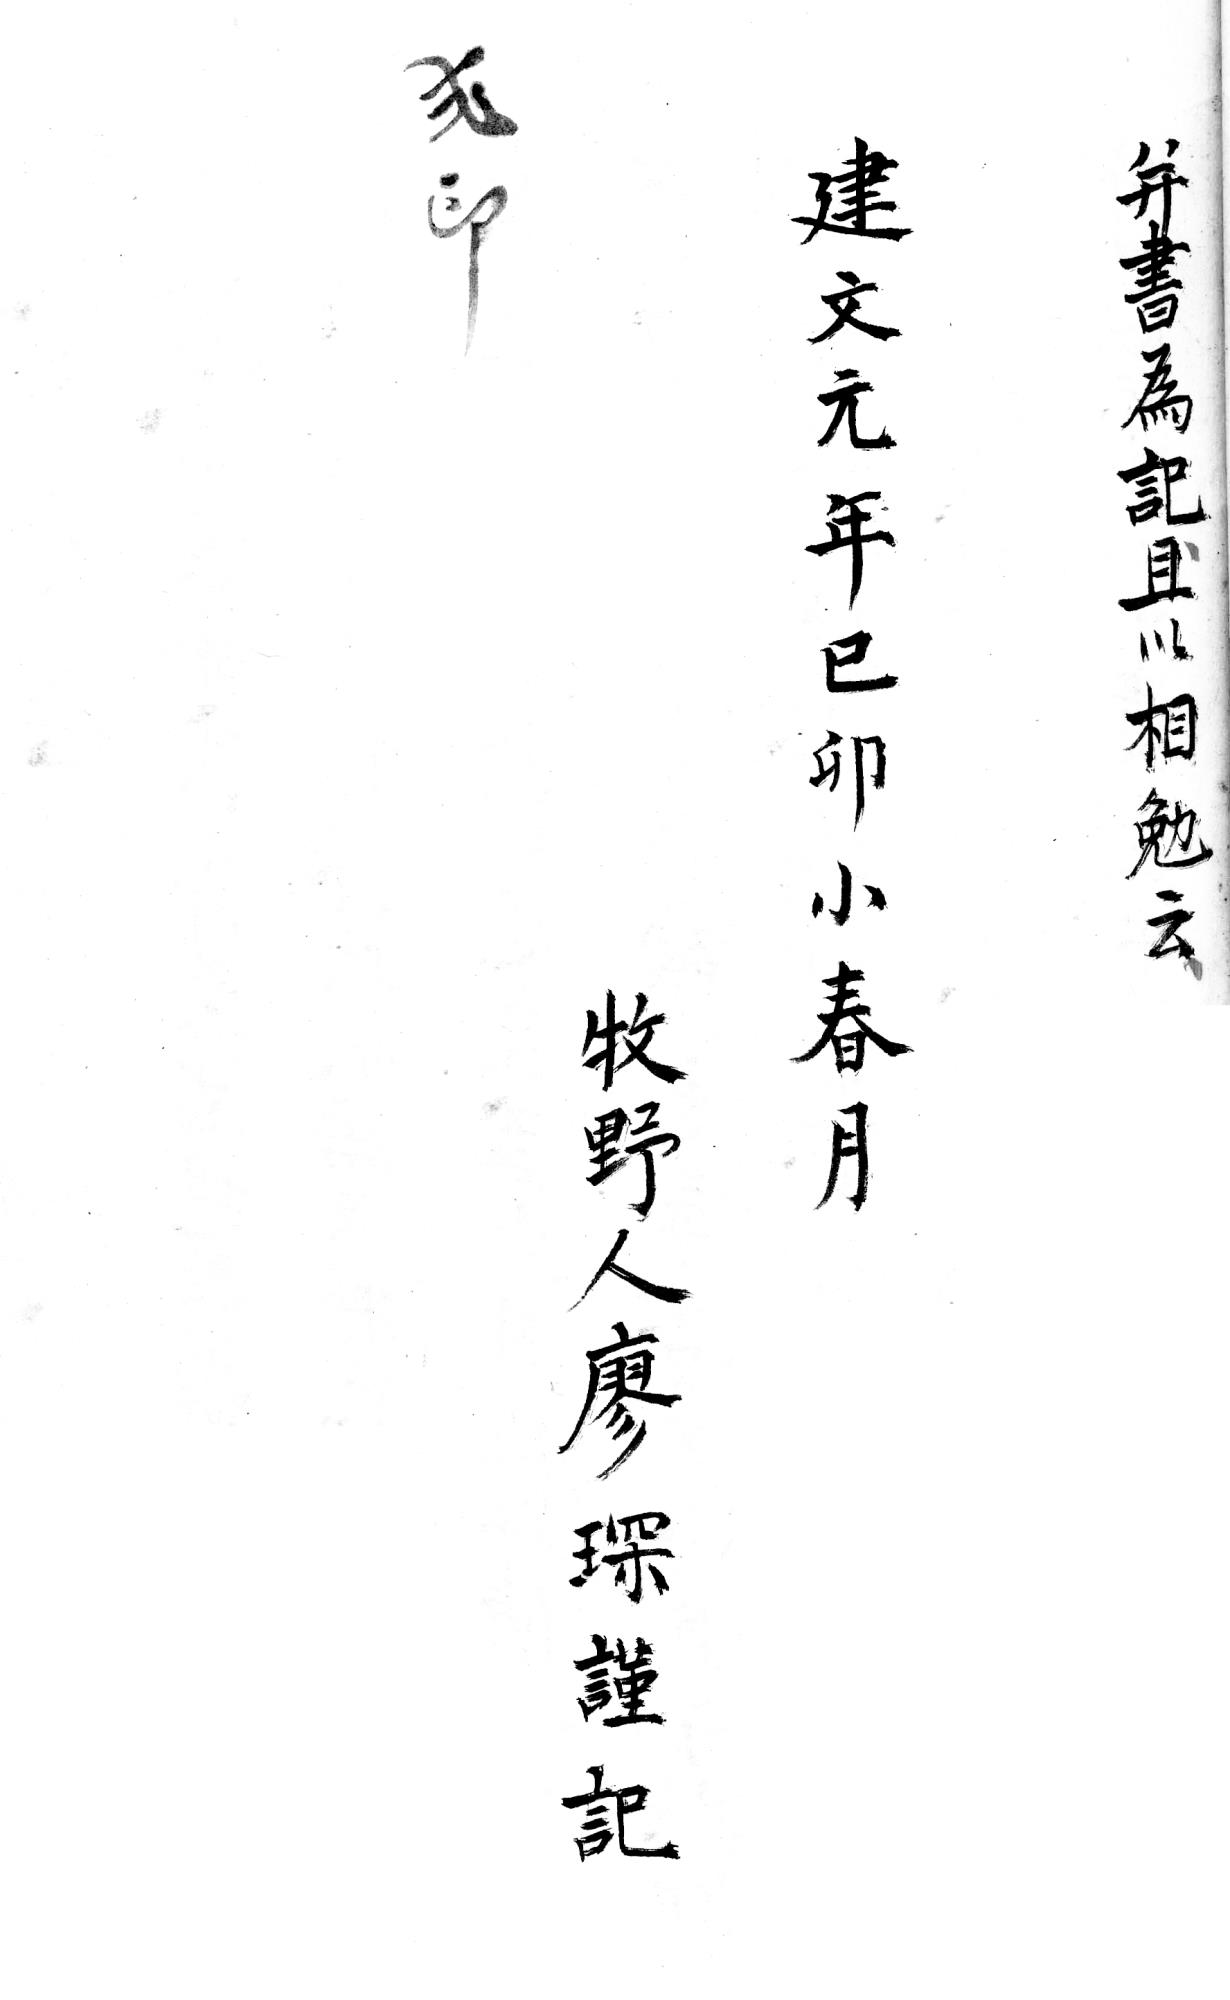 并書為記且以相勉云
建文元年已卯小春月
牧野人廖琛謹記